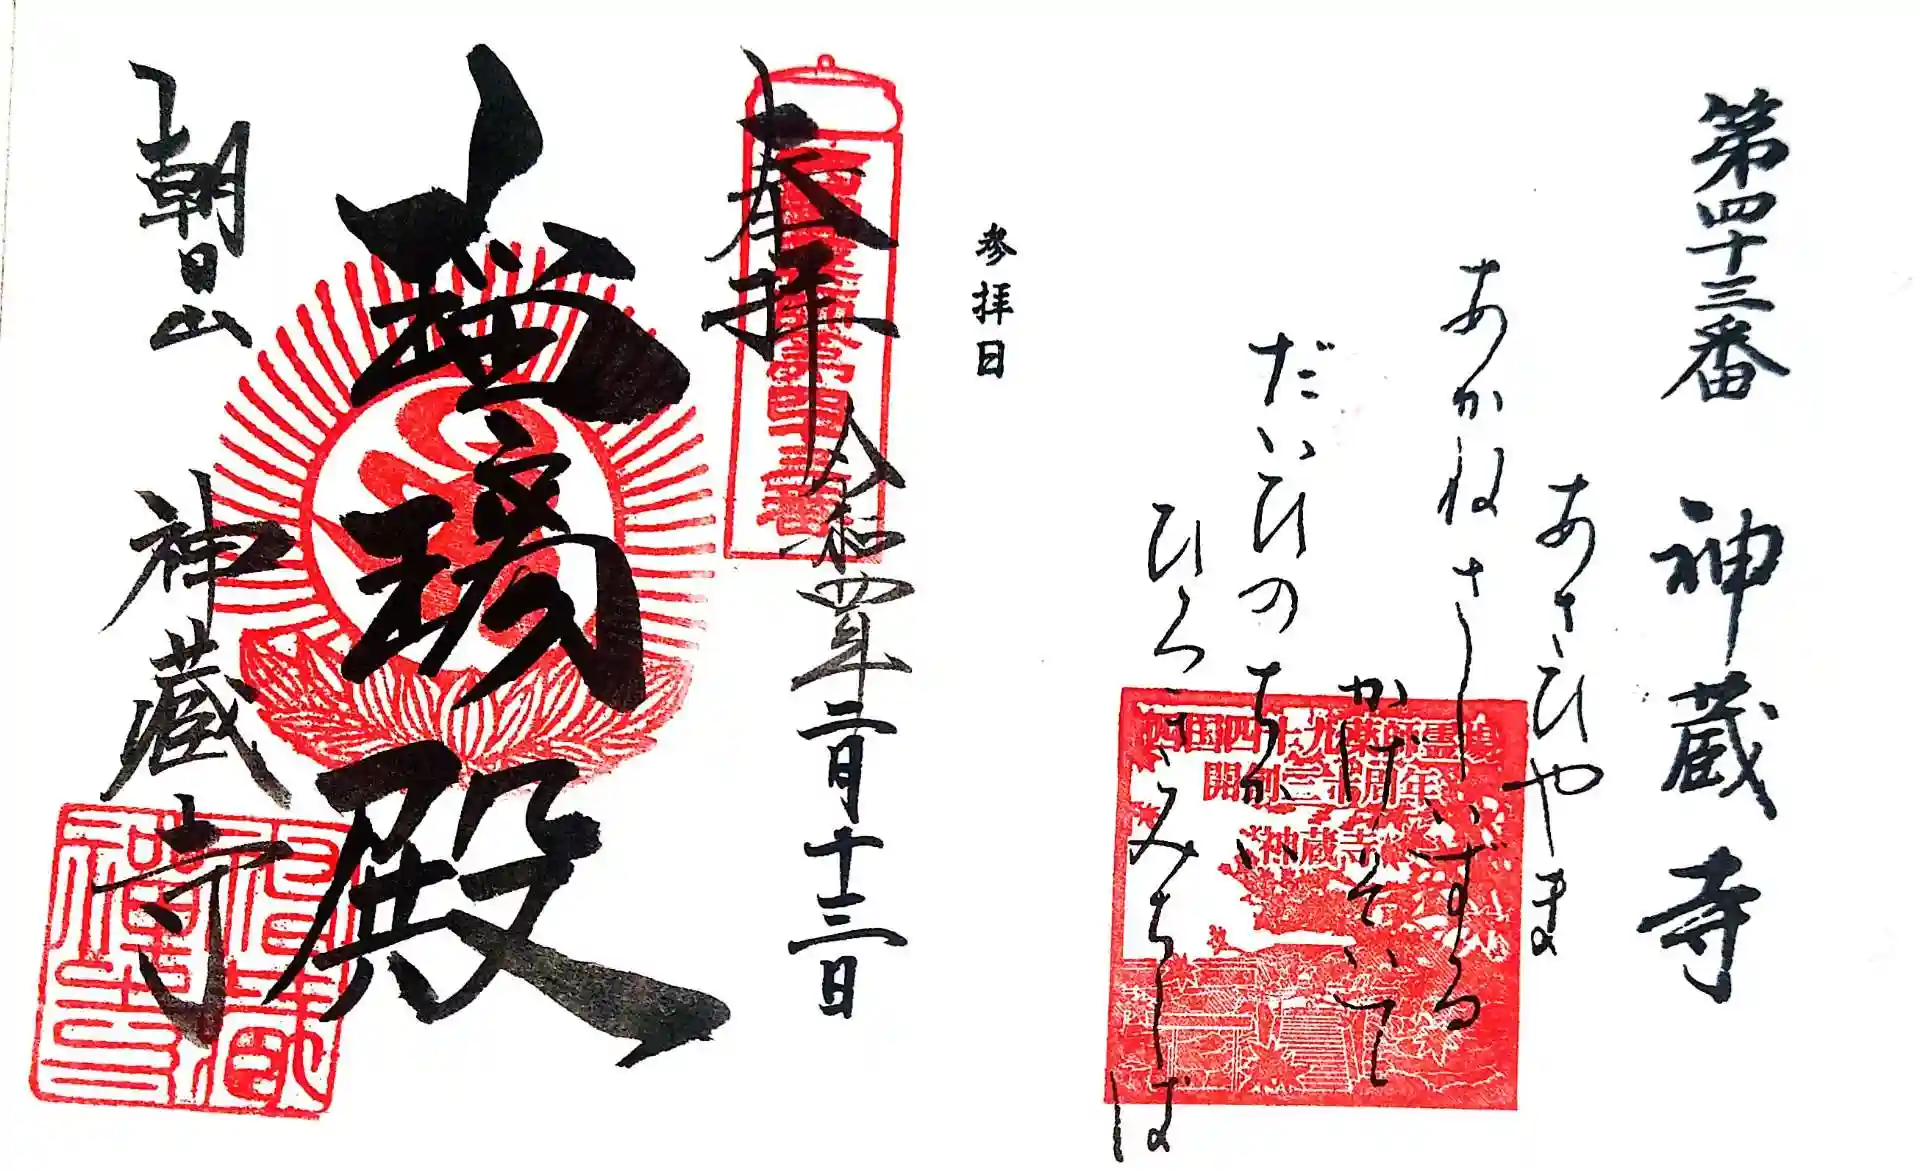 第四十三番 神蔵寺
あさひやま
あかねさしいずる
かげそいて
だいひのちかい
ひろきみちしば
西国四十九薬師霊場
開創三十周年
神蔵寺
参拝日
奉拝 令和四年二月十三日
西国薬師第四十三番
瑠璃殿
朝日山 神蔵寺